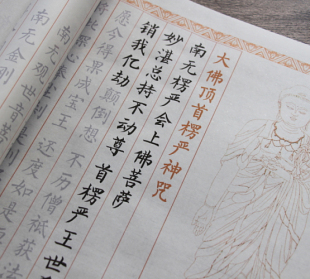 大佛顶首楞严神咒
南无楞严会上佛菩萨
妙湛总持不动尊 首楞严王世
销我亿劫颠倒想 不历僧祇获法
愿今得果成宝王 还度如是
南无观世音菩
南无金刚